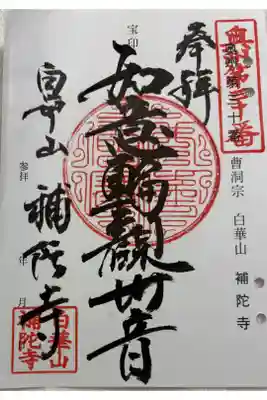 奥州第三十番
奥州第三十番
奉拝
宝印
如意輪観世音
曹洞宗 白華山 補陀寺
白華山
参拝
補陀寺
年 月
白華山
補陀寺